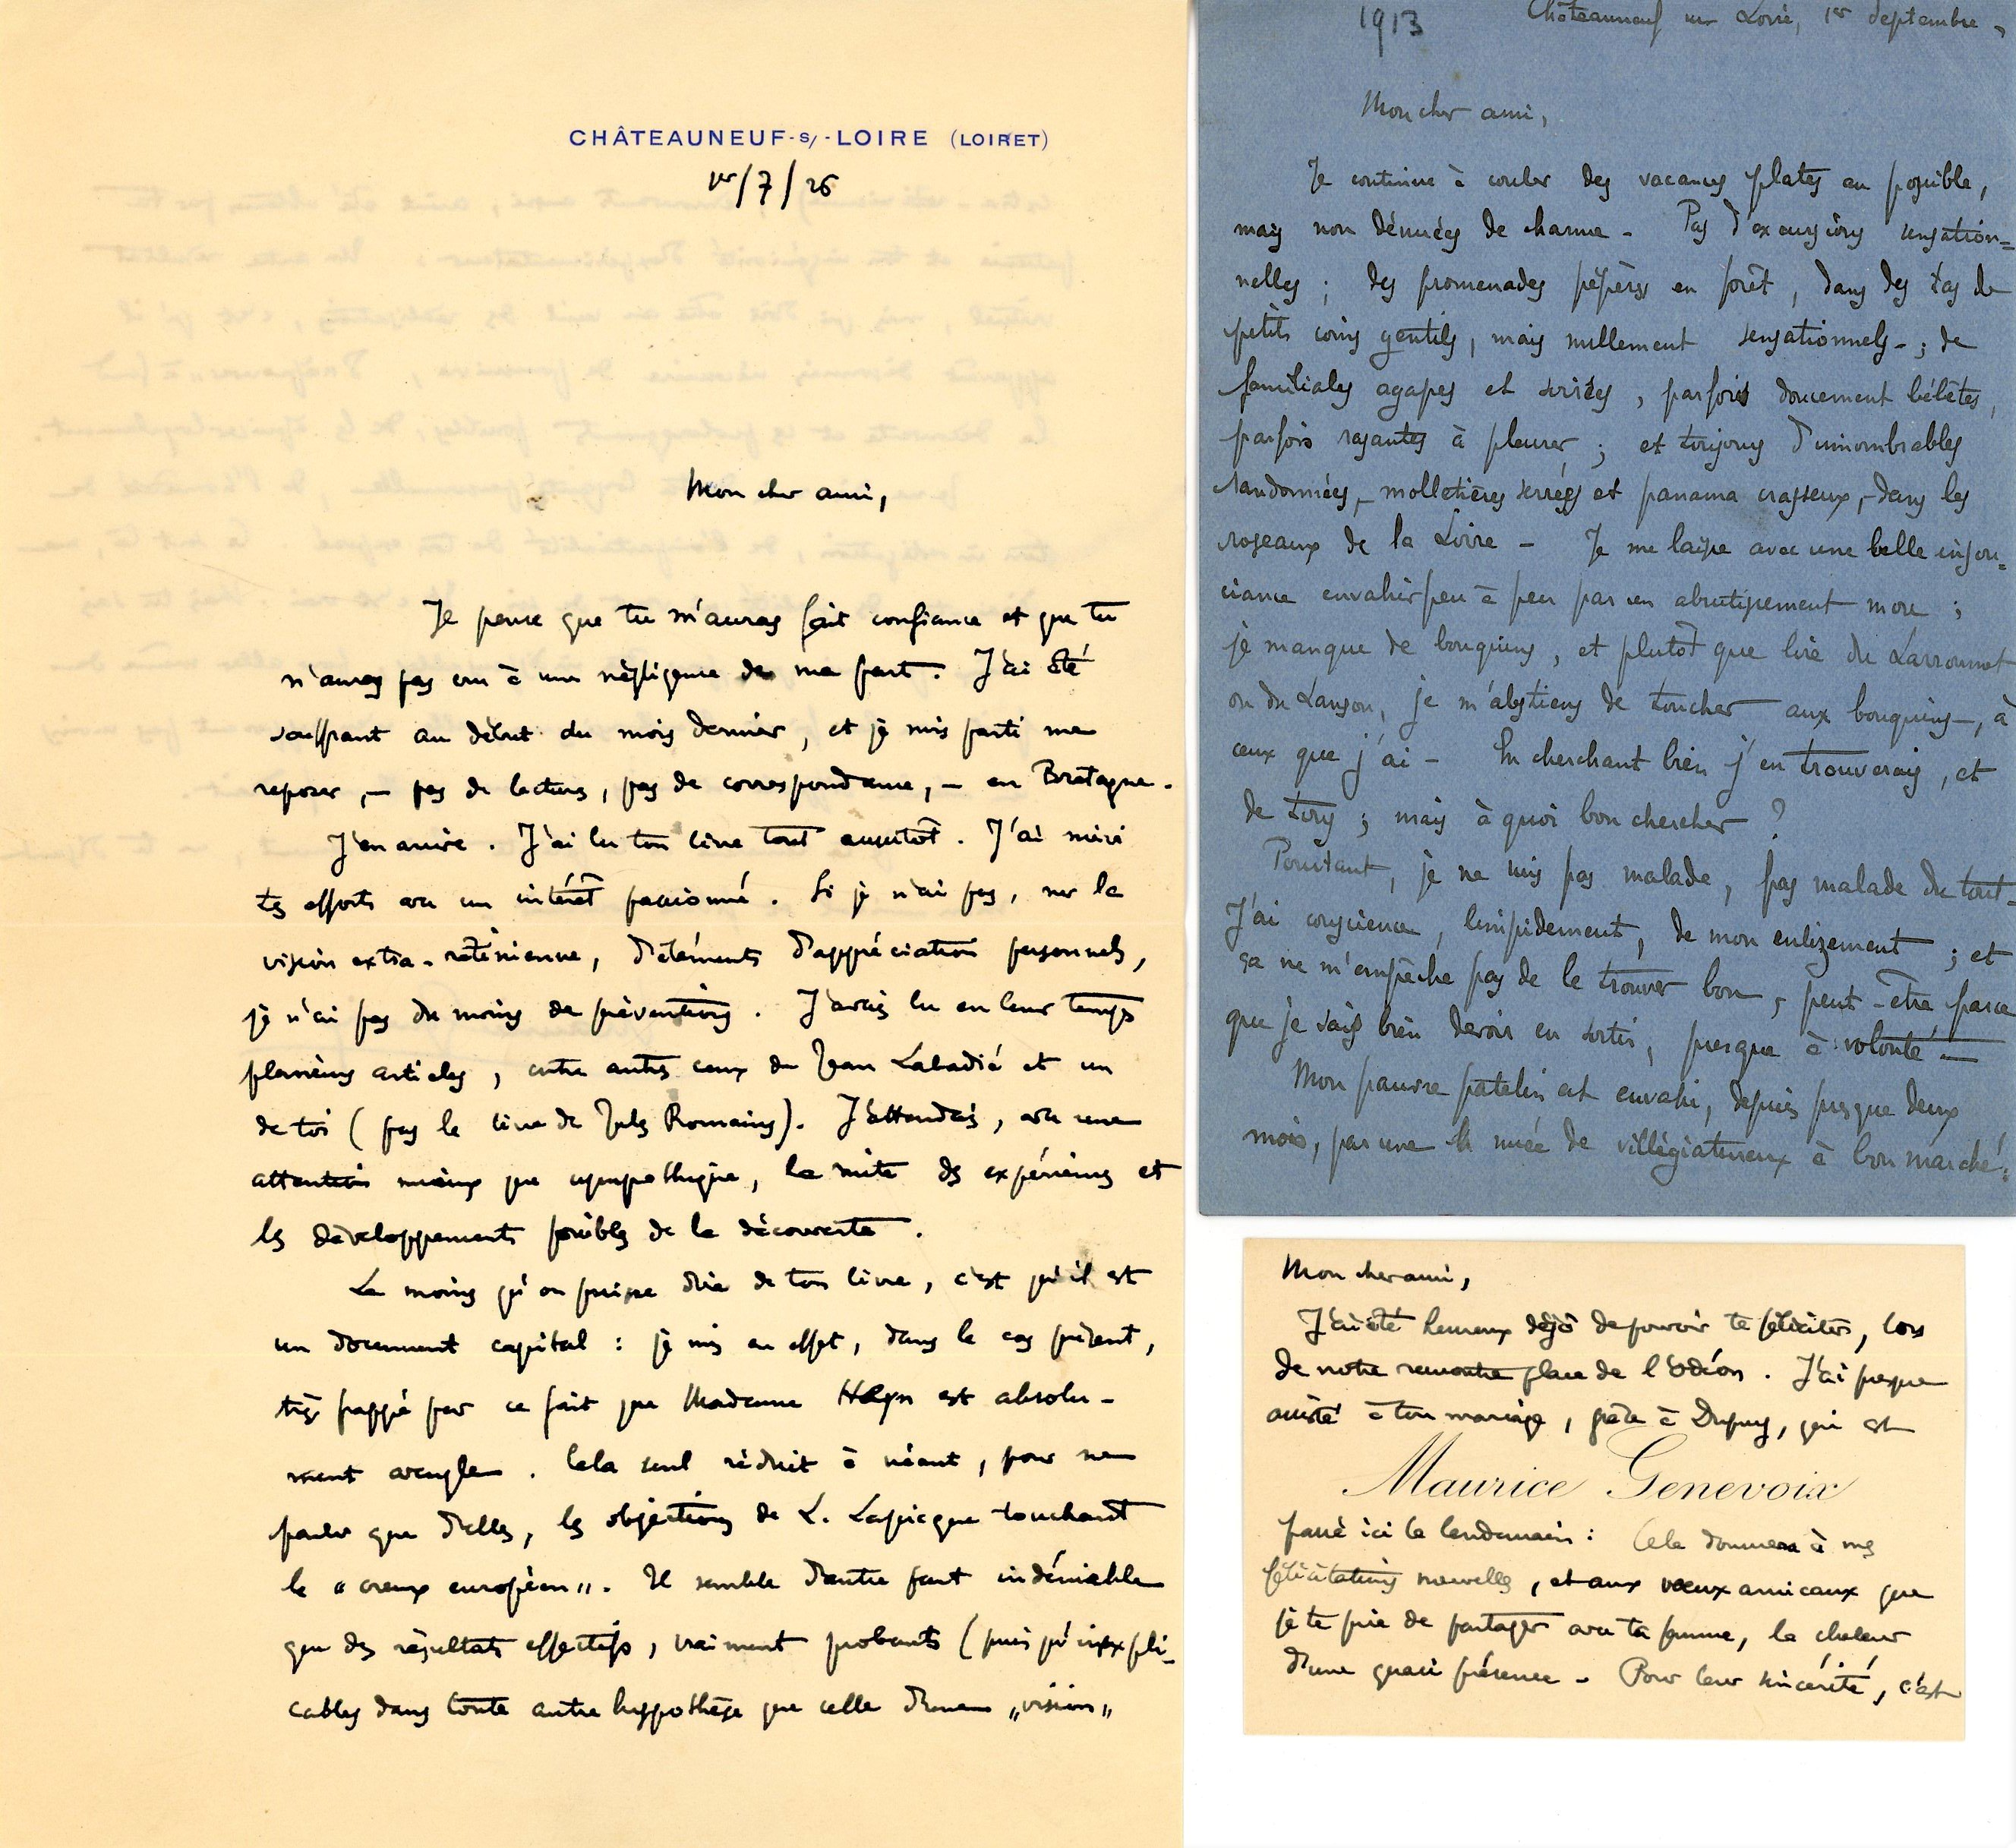 CHÂTEAUNEUF-s/-LOIRE (LOIRET)
1er/7/26
Mon cher ami,
Je pense que tu m'auras fait confiance et que tu
n'auras pas cru à une négligence de ma part. J'ai été
souffrant au début du mois dernier, et je suis parti me
reposer, – pas de lectures, pas de correspondance, – en Bretagne.
J'en arrive. J'ai lu ton livre tout aussitôt. J'ai suivi
tes efforts avec un intérêt passionné. Si je n'ai pas, sur la
vision extra-rétinienne, d'éléments d'appréciation personnels,
je n'ai pas du moins de préventions. J'avais lu en leur temps
plusieurs articles, entre autres ceux de Jean Labadié et un
de toi (pas le livre de Jules Romains). J'attendais, avec une
attention mieux que sympathique, la suite des expériences et
les développements possibles de la découverte.
Le moins qu'on puisse dire de ton livre, c'est qu'il est
un document capital : je suis en effet, dans le cas présent,
très frappé par ce fait que Madame Heyn est absolu-
ment aveugle. Cela seul réduit à néant, pour ne
parler que d'elles, les objections de L. Lapicque touchant
le "creux européen". Il semble d'autre part indéniable
que des résultats effectifs, vraiment probants (puisqu'inexpli-
cables dans toute autre hypothèse que celle d'une "vision"
1913
Châteauneuf sur Loire, 1er septembre
Mon cher ami,
Je continue à couler des vacances plates au possible,
mais non dénuées de charme – Pas d'excursions sensation=
nelles ; des promenades pépères en forêt, dans des tas de
petits coins gentils, mais nullement sensationnels – ; de
familiales agapes et soirées, parfois doucement bébêtes,
parfois rasantes à pleurer ; et toujours d'innombrables
randonnées, – molletières serrées et panama crasseux, – dans les
roseaux de la Loire – Je me laisse avec une belle insou=
ciance envahir peu à peu par un abrutissement morne ;
je manque de bouquins, et plutôt que lire du Larroumet
ou du Lanson, je m'abstiens de toucher aux bouquins –, à
ceux que j'ai – En cherchant bien j'en trouverais, et
de tous ; mais à quoi bon chercher ?
Pourtant, je ne suis pas malade, pas malade du tout –
J'ai conscience, limpidement, de mon enlizement ; et
ça ne m'empêche pas de le trouver bon, peut-être parce
que je sais bien devoir en sortir, presque à volonté –
Mon pauvre patelin est envahi, depuis presque deux
mois, par une nuée de villégiatureux à bon marché :
Mon cher ami,
J'ai été heureux déjà de pouvoir te féliciter, lors
de notre rencontre place de l'Odéon. J'ai presque
assisté à ton mariage, grâce à Dupuy, qui est
Maurice Genevoix
passé ici le lendemain : Cela donnera à mes
félicitations nouvelles, et aux vœux amicaux que
je te prie de partager avec ta femme, la chaleur
d'une quasi présence – Pour leur sincérité, c'est